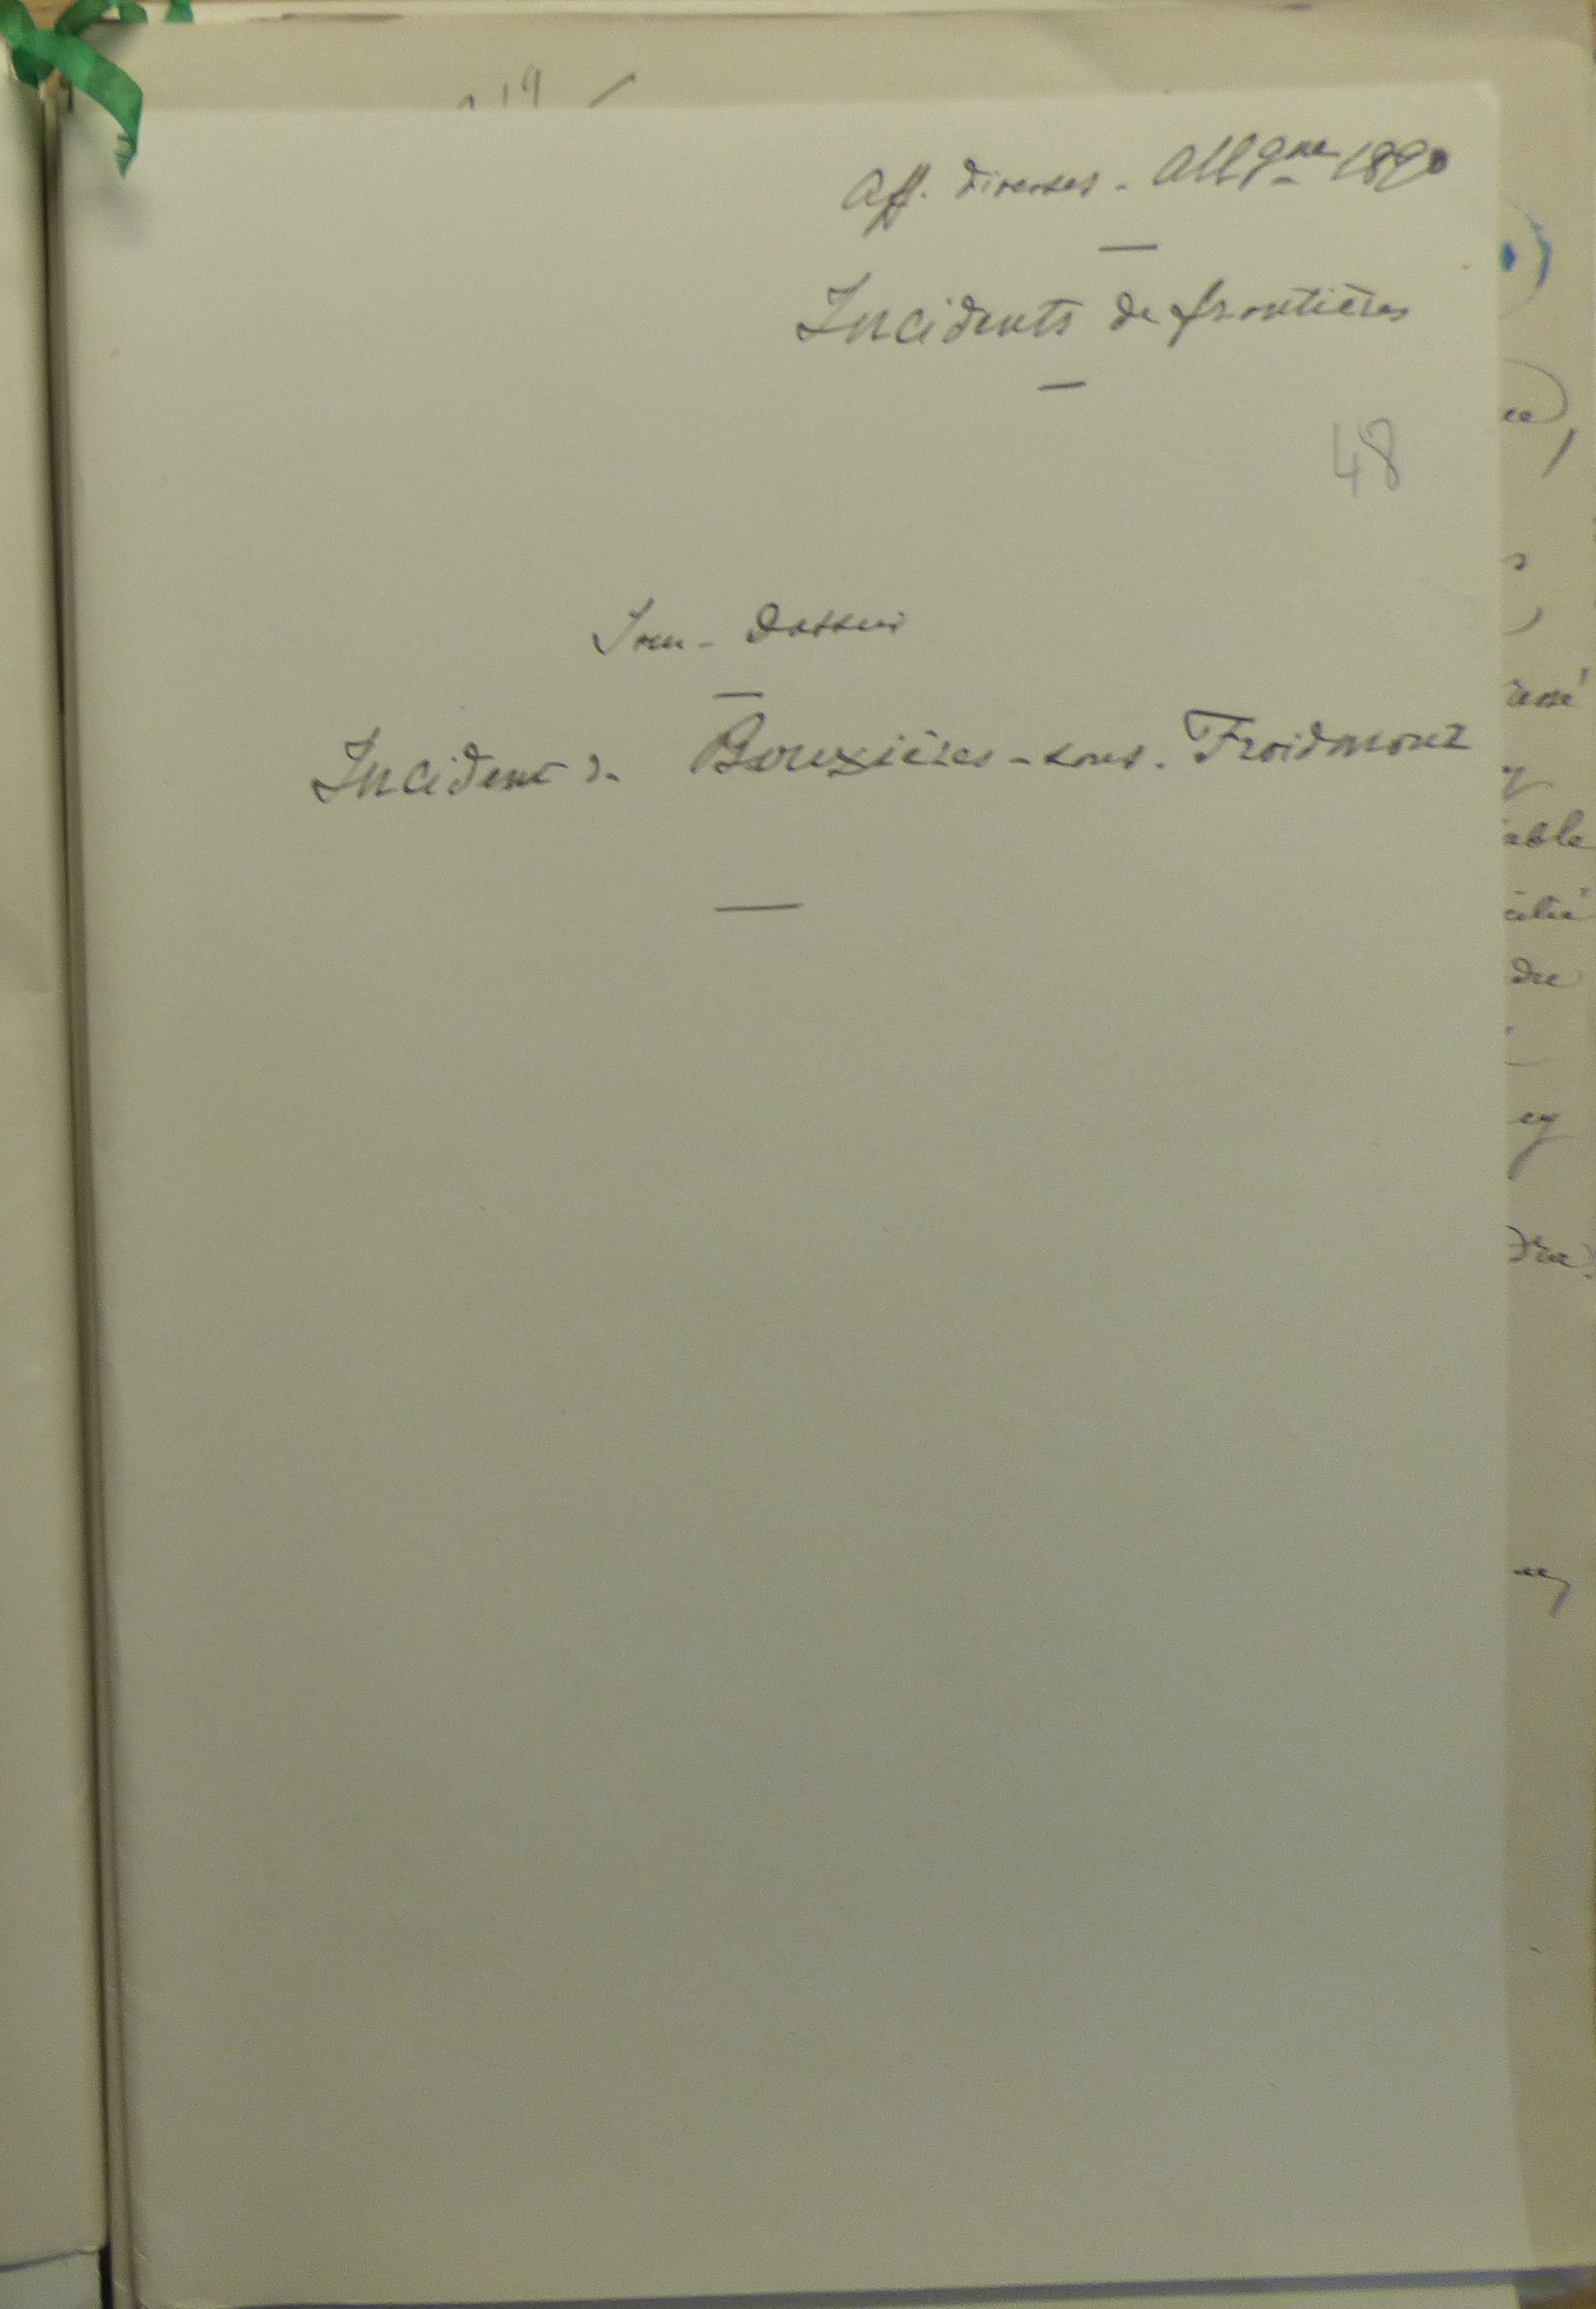 Aff. diverses - All^gne 1890
Incidents de frontières
48
Sous-Dossier
Incident de Bouxières-sous-Froidmont
able
du